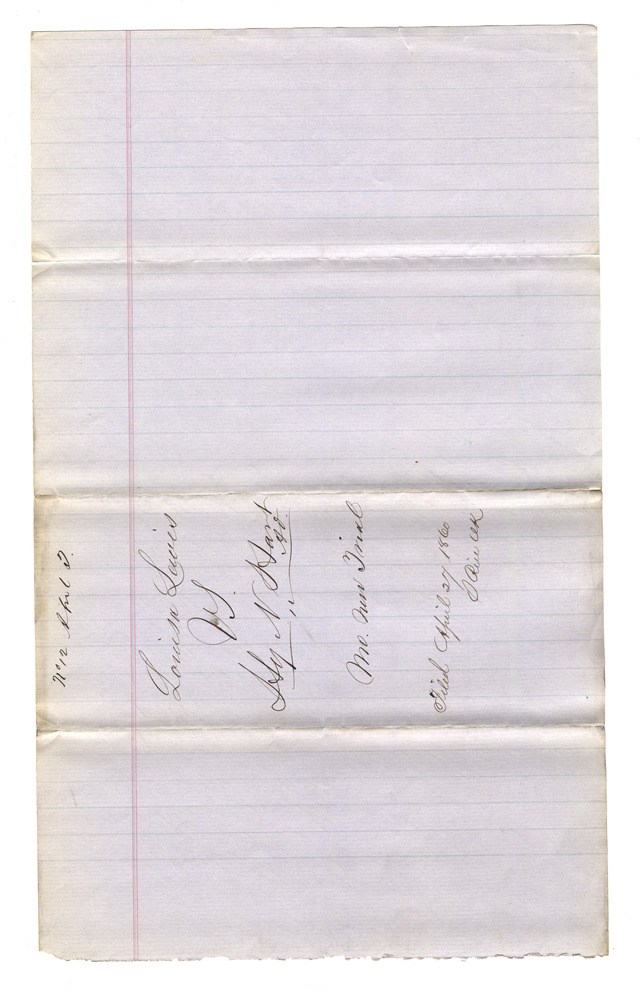 No 12 April T.
Louisa Lewis
VS.
Hy N Hart
Mo. New Trial
Filed April 27 1860